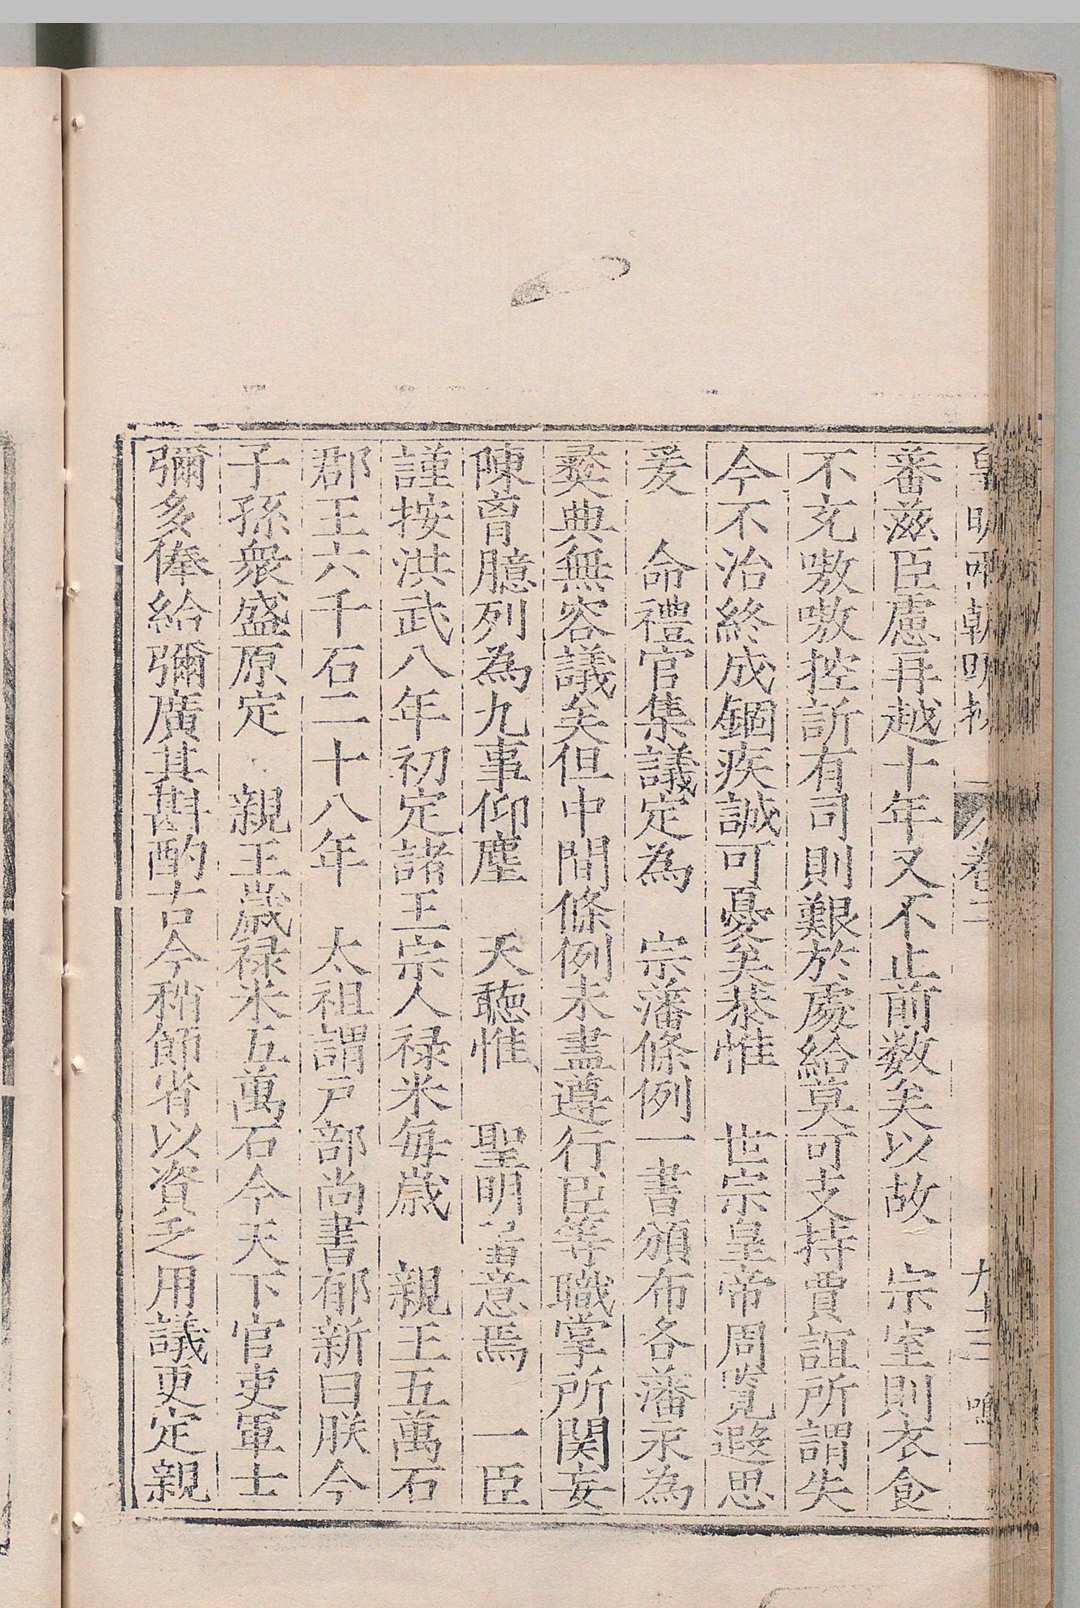 皇明兩朝明 卷二 九十三
番滋臣慮再越十年又不止前数矣以故 宗室則衣食
不充嗷嗷控訴有司則艱於處給莫可支持賈誼所謂失
今不治終成錮疾誠可憂矣恭惟 世宗皇帝周覽遐思
爰 命禮官集議定為 宗藩條例一書頒布各藩永為
彝典無容議矣但中間條例未盡遵行臣等職掌所関妄
陳胷臆列為九事仰塵 天聽惟 聖明畱意焉 一臣
謹按洪武八年初定諸王宗人禄米每歲 親王五萬石
郡王六千石二十八年 太祖謂戸部尚書郁新曰朕今
子孫衆盛原定 親王歲禄米五萬石今天下官吏軍士
彌多俸給彌廣其斟酌古今稍節省以資乏用議更定親